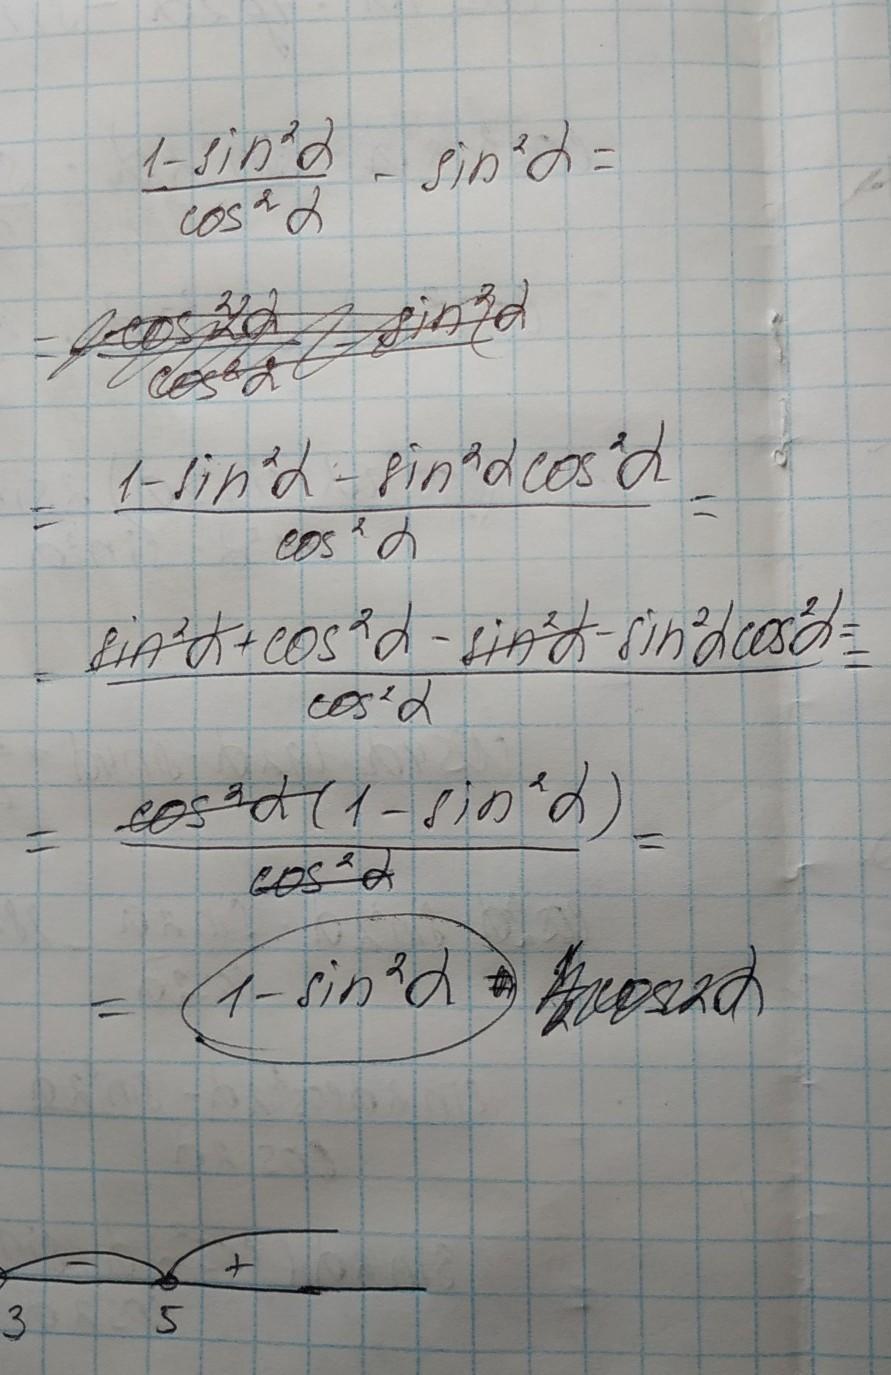 (1-sin²α)/(cos²α) - sin²α =
= cos²α/cos²α - sin²α
= (1-sin²α - sin²α cos²α)/(cos²α) =
= (sin²α + cos²α - sin²α - sin²α cos²α)/(cos²α) =
= (cos²α (1 - sin²α))/(cos²α) =
= 1 - sin²α cos2α
- +
3 5